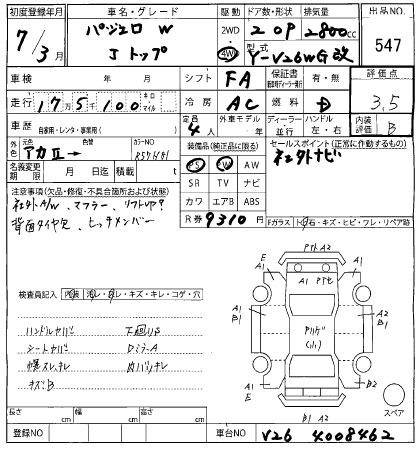 初度登録年月 車名・グレード 駆動 ドア数・形状 排気量 出品NO.
7/3月 パジェロ W Jトップ 2WD 4WD 2 DP 2800cc 547
型式 Y-V26WG改
車検 年 月 シフト FA 保証書 有・無 評価点
走行 17万5千100 キロ マイル 冷房 AC 燃料 3.5
車歴 自家用・レンタ・事業用( ) 定員 4人 外車モデル 年 ディーラー 並行 ハンドル 左・右 内装評価 B
外色 元色 アカII→ 色替 カラーNO
装備品(純正品に限る) セールスポイント(正常に作動するもの)
PS PW AW
名義変更期限 月 日迄 積載 t
SR TV ナビ
カワ エアB ABS
R券 9310円
注意事項(欠品・修復・不具合箇所および状態)
社外A/W、マフラー、リフトUP?
背面タイヤ欠、ヒッチメンバー
Fガラス トビ石・キズ・ヒビ・ワレ・リペア跡
検査員記入 内装 汚レ・スレ・キズ・キレ・コゲ・穴
ハンドルヤバ 下廻りサビ
シートヤバ DミラーA
幌スレキレ 内バリキレ
キズB
E A1 A1 A1 A2 B1 A1 A2 B1 A1 E B2 B1 A2
スペア
長さ cm 幅 cm 高さ cm
登録NO 車台NO V26 4008462